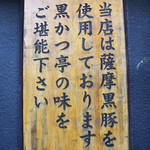 当店は薩摩黒豚を
使用しております
黒かつ亭の味を
ご堪能下さい